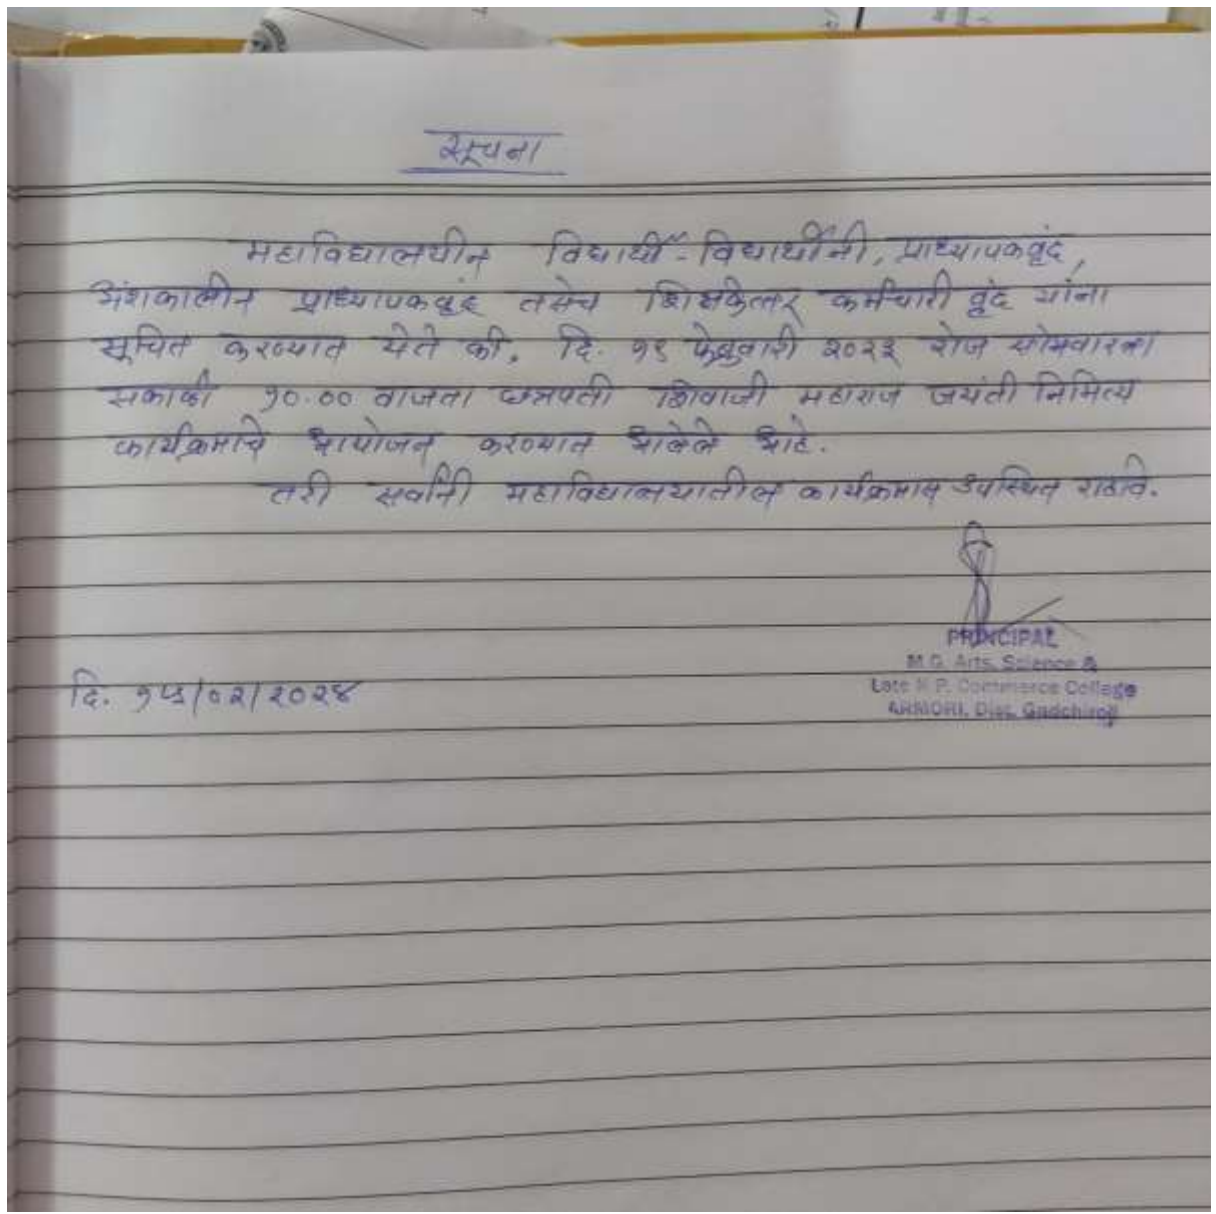 सूचना
महाविद्यालयीन विद्यार्थी - विद्यार्थीनी, प्राध्यापकवृंद,
अंशकालीन प्राध्यापकवृंद तसेच शिक्षकेत्तर कर्मचारी वृंद यांना
सूचित करण्यात येते की, दि. १९ फेब्रुवारी २०२३ रोज सोमवारला
सकाळी १०.०० वाजता छत्रपती शिवाजी महाराज जयंती निमित्य
कार्यक्रमाचे आयोजन करण्यात आलेले आहे.
तरी सर्वांनी महाविद्यालयातील कार्यक्रमास उपस्थित राहावे.
PRINCIPAL
M.G. Arts, Science &
Late N.P. Commerce College
ARMORI, Dist. Gadchiroli
दि. १५/०२/२०२४